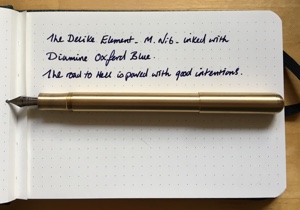 The Delike Element - M. Nib - inked with
Diamine Oxford Blue.
The road to Hell is paved with good intentions.